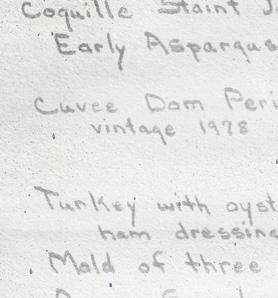 Coquille Staint J
Early Asparagus
Cuvee Dom Peri
vintage 1978
Turkey with oyst
ham dressing
Mold of three